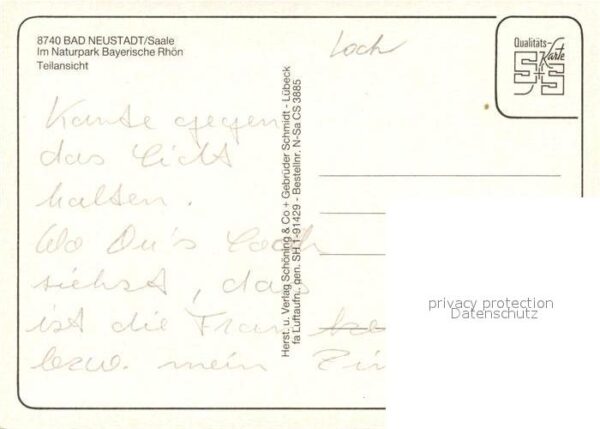 8740 BAD NEUSTADT/Saale
Im Naturpark Bayerische Rhön
Teilansicht
Loch
Qualitäts-
Karte
S+S
Karte gegen
das Licht
halten.
Wo Du's Loch
siehst, da
ist die
bzw. mein
Herst. u. Verlag Schöning & Co + Gebrüder Schmidt - Lübeck
fa Luftaufn. gen. SH 1-91429 - Bestellnr. N-Sa CS 3885
privacy protection
Datenschutz